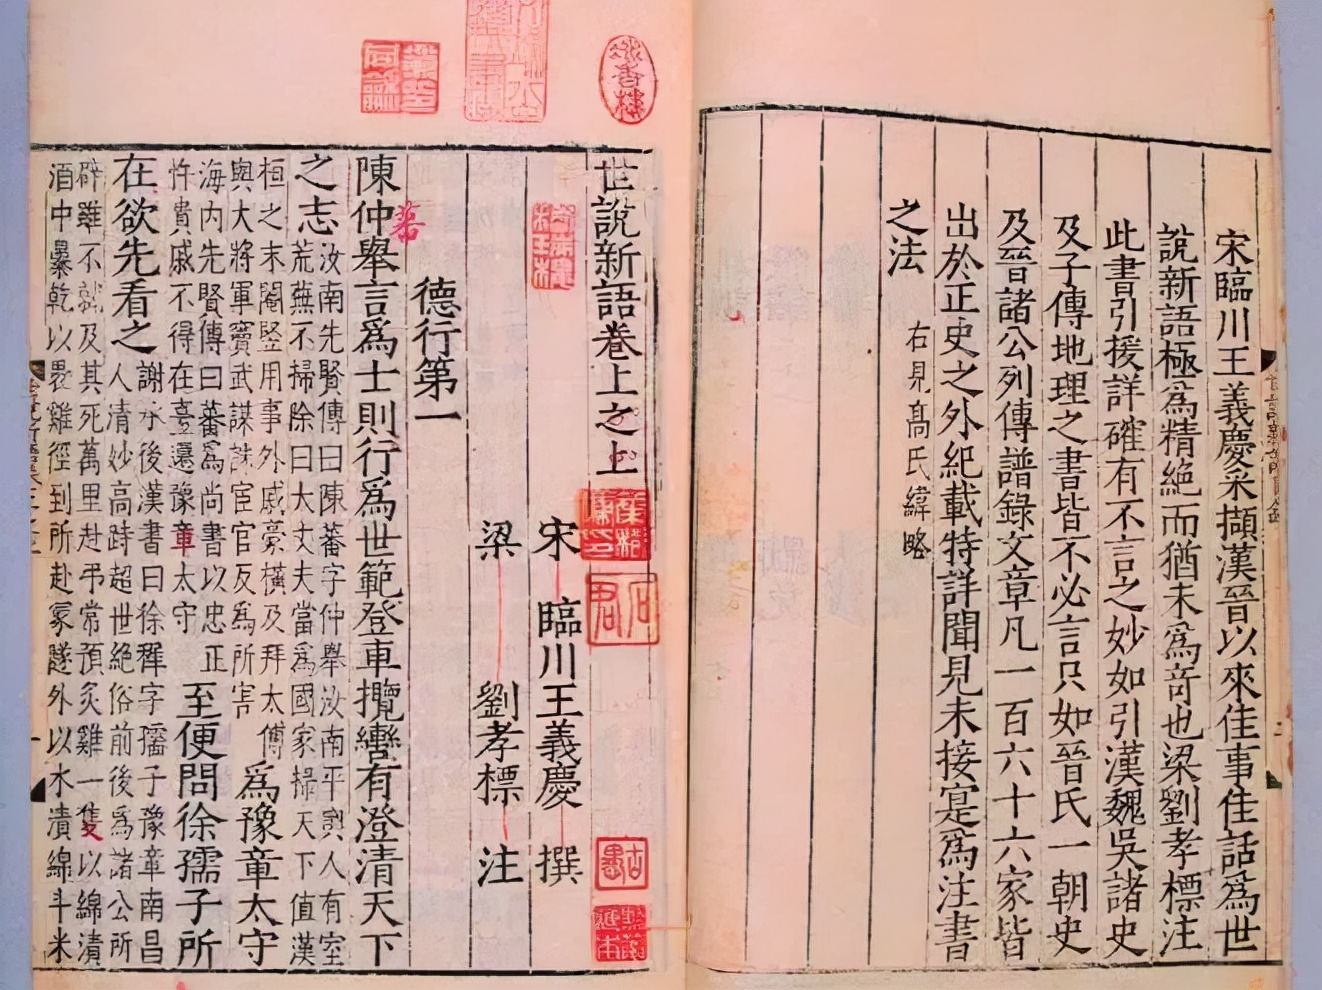 宋臨川王義慶采擷漢晉以來佳事佳話爲世
說新語極爲精絕而猶未爲奇也梁劉孝標注
此書引援詳確有不言之妙如引漢魏吳諸史
及子傳地理之書皆不必言只如晉氏一朝史
及晉諸公列傳譜錄文章凡一百六十六家皆
出於正史之外紀載特詳聞見未接寔爲注書
之法 右見高氏緯略
世說新語卷上之上
宋 臨川王義慶 撰
梁 劉孝標 注
德行第一
陳仲舉言爲士則行爲世範登車攬轡有澄清天下
之志
汝南先賢傳曰陳蕃字仲舉汝南平輿人有室
荒蕪不掃除曰大丈夫當爲國家掃天下值漢
桓之末閹豎用事外戚豪橫及拜太傅
與大將軍竇武謀誅宦官反爲所害
爲豫章太守
海內先賢傳曰蕃爲尚書以忠正
忤貴戚不得在臺遷豫章太守
至便問徐孺子所
在欲先看之
謝承後漢書曰徐穉字孺子豫章南昌
人清妙高跱超世絕俗前後爲諸公所
辟雖不就及其死萬里赴弔常預炙雞一隻以綿漬
酒中暴乾以裹雞徑到所赴冢隧外以水漬綿斗米
蕃
冰香樓